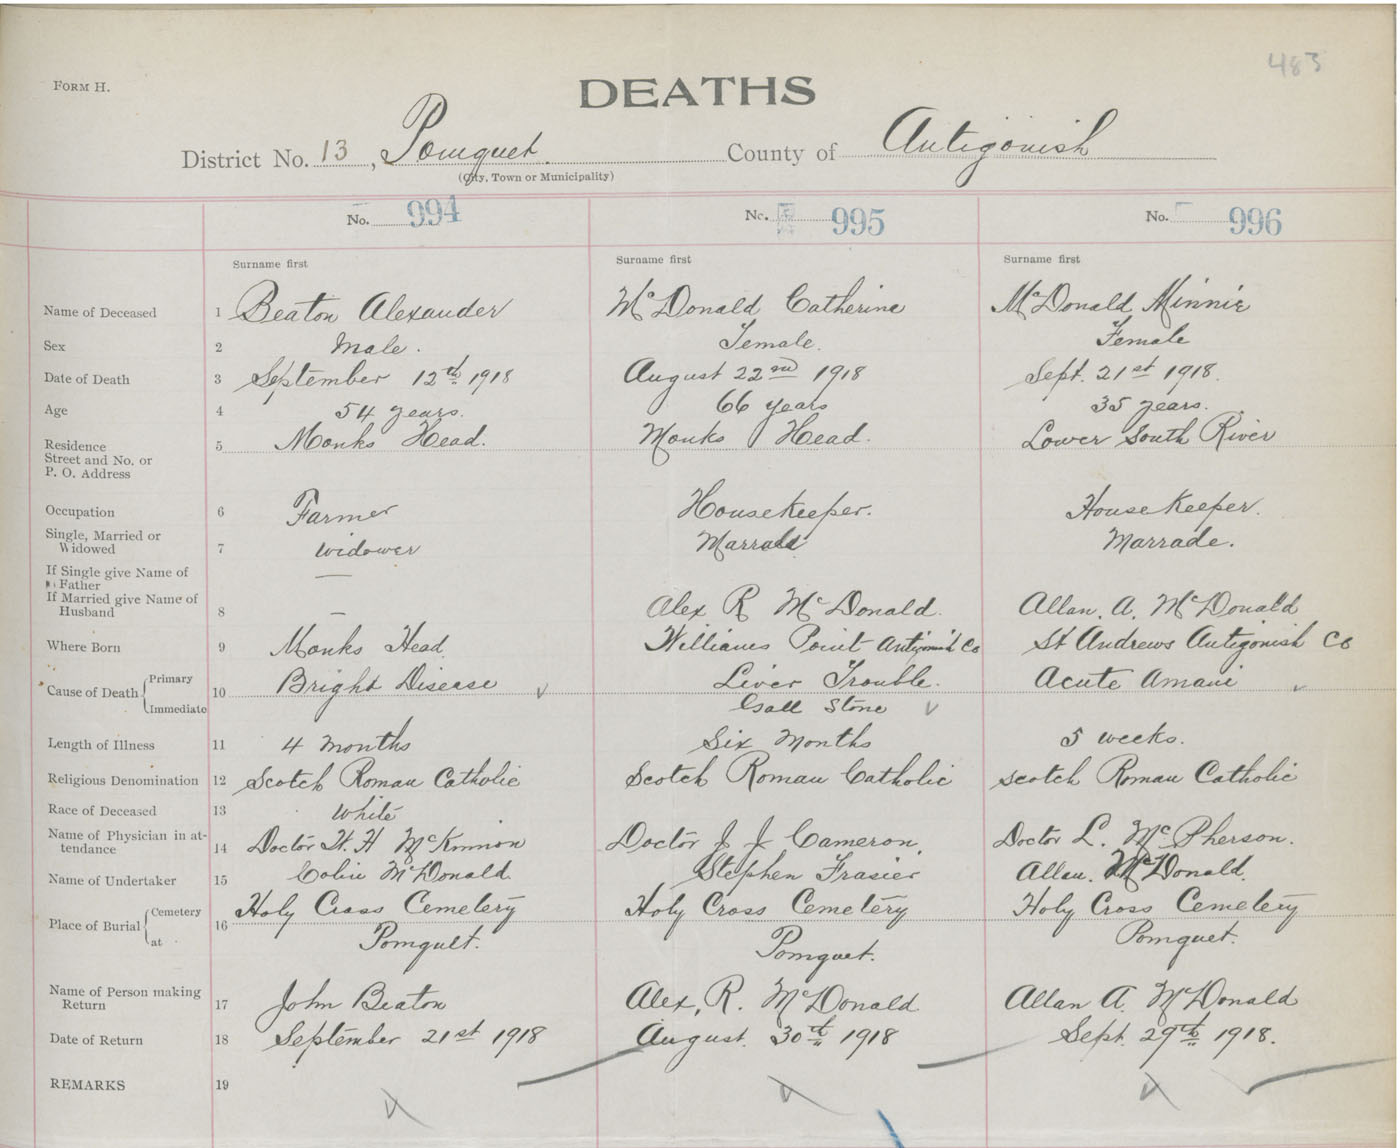 483
FORM H.
DEATHS
District No. 13, Pomquet. County of Antigonish
(City, Town or Municipality)
No. 994 No. 995 No. 996
Surname first Surname first Surname first
Name of Deceased 1 Beaton Alexander McDonald Catherine McDonald Minnie
Sex 2 Male. Female. Female
Date of Death 3 September 12th 1918 August 22nd 1918 Sept. 21st 1918.
Age 4 54 years. 66 years 35 years.
Residence 5 Monks Head. Monks Head. Lower South River
Street and No. or
P. O. Address
Occupation 6 Farmer Housekeeper. HouseKeeper.
Single, Married or
Widowed 7 Widower Marrade Marrade.
If Single give Name of —
Father
If Married give Name of
Husband 8 — Alex R McDonald. Allan. A. McDonald
Where Born 9 Monks Head. Williams Point Antigonish Co St Andrews Antigonish Co
Cause of Death Primary 10 Bright Disease Liver Trouble. Acute Amani
Immediate Gall Stone
Length of Illness 11 4 Months Six Months 5 weeks.
Religious Denomination 12 Scotch Roman Catholic Scotch Roman Catholic Scotch Roman Catholic
Race of Deceased 13 White
Name of Physician in at-
tendance 14 Doctor H. H McKinnon Doctor J J Cameron. Doctor L. McPherson.
Name of Undertaker 15 Colin McDonald. Stephen Frasier Allan. McDonald.
Place of Burial Cemetery 16 Holy Cross Cemetery Holy Cross Cemetery Holy Cross Cemetery
at Pomquet. Pomquet. Pomquet.
Name of Person making
Return 17 John Beaton Alex, R. McDonald Allan A. McDonald
Date of Return 18 September 21st 1918 August. 30th 1918 Sept. 29th 1918.
REMARKS 19